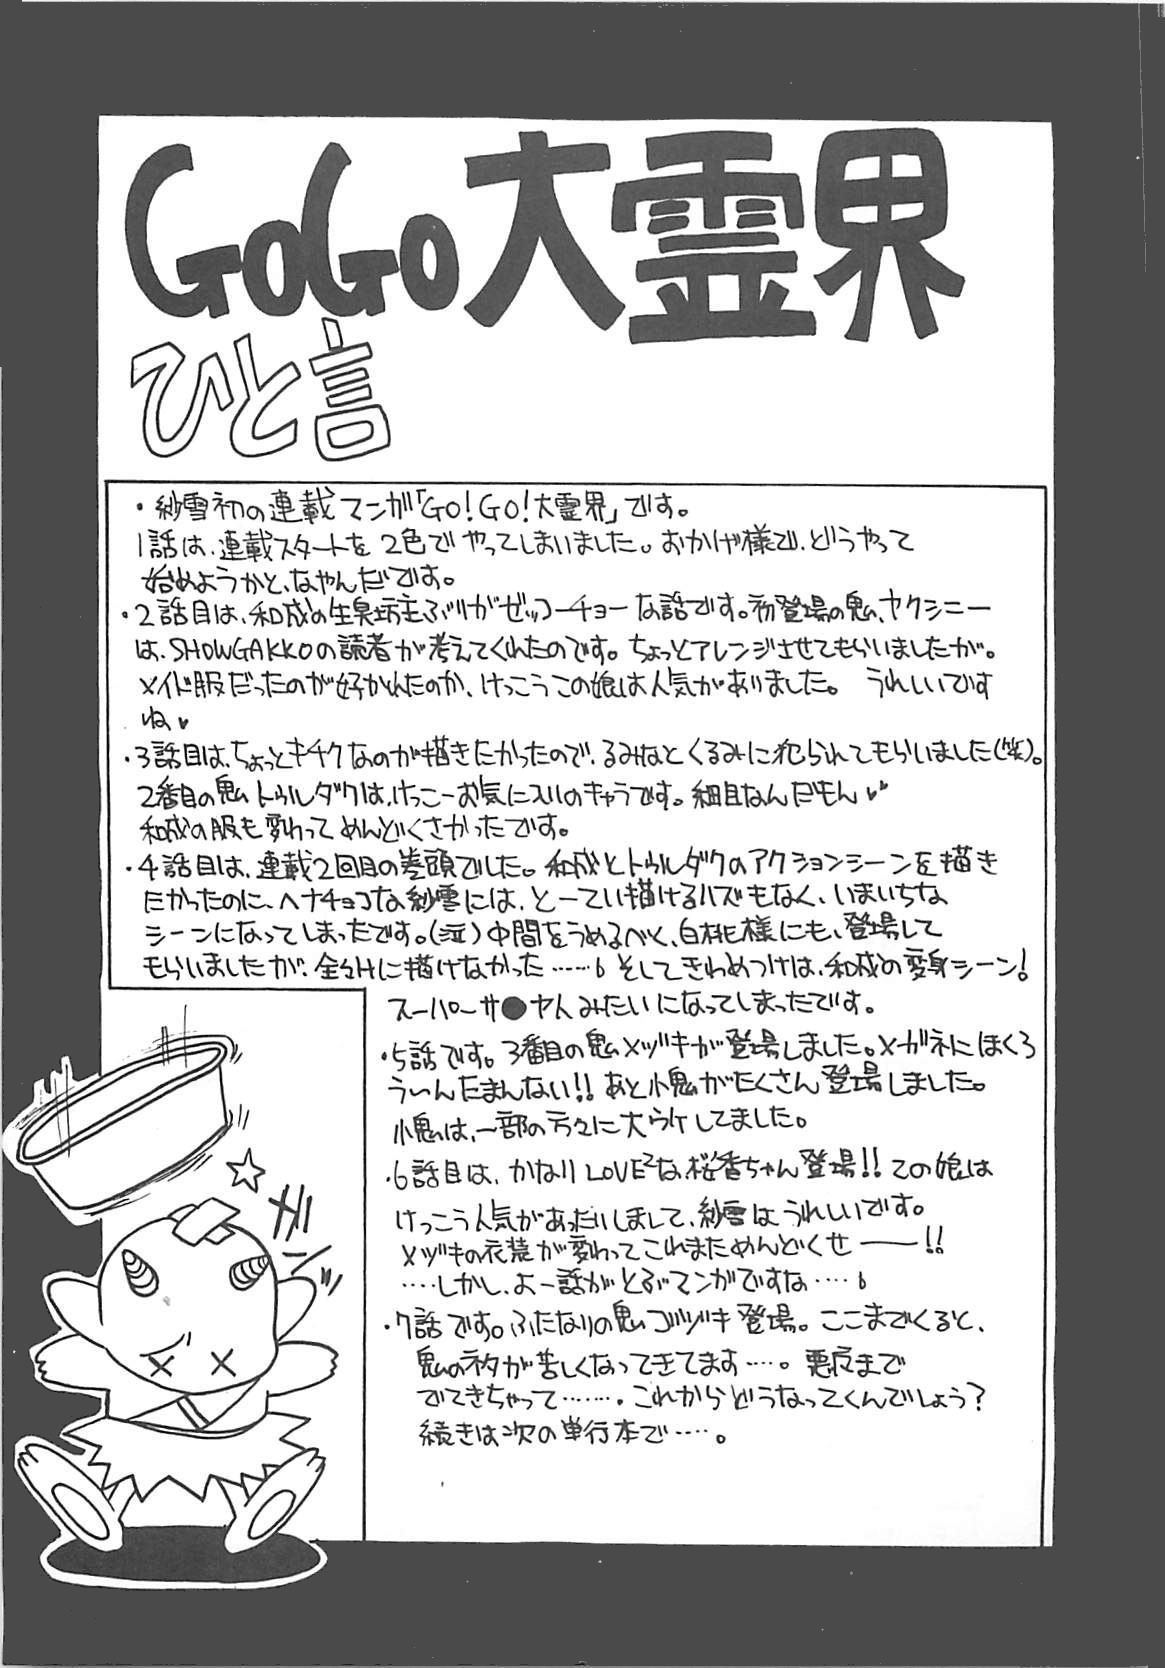 GoGo大霊界
ひと言
・紗雪初の連載マンガ「GO!GO!大霊界」です。
1話は、連載スタートを2色でやってしまいました。おかげ様で、どうやって
始めようかと、なやんだです。
・2話目は、和成の生臭坊主ぶりがゼッコーチョーな話です。初登場の鬼、ヤクシニー
は、SHOWGAKKOの読者が考えてくれたのです。ちょっとアレンジさせてもらいましたが。
メイド服だったのが好かれたのか、けっこうこの娘は人気がありました。 うれしいです
ね♥
・3話目は、ちょっとキチクなのが描きたかったので、るみなとくるみに犯られてもらいました(笑)。
2番目の鬼トゥルダクは、けっこーお気に入いのキャラです。細目なんだもん♥♥
和成の服も変わってめんどくさかったです。
・4話目は、連載2回目の巻頭でした。和成とトゥルダクのアクションシーンを描き
たかったのに、ヘナチョコな紗雪には、とーてい描けるハズもなく、いまいちな
シーンになってしまったです。(泣)中間をうめるべく、白桃様にも、登場して
もらいましたが、全々Hに描けなかった……。そしてきわめつけは、和成の変身シーン!
スーパーサ●ヤ人みたいになってしまったです。
・5話です。3番目の鬼メヅキが登場しました。メガネにほくろ
うぃんたまんない!!あと小鬼がたくさん登場しました。
小鬼は、一部の方々に大ウケしてました。
・6話目は、かなりLOVE²な、桜香ちゃん登場!!この娘は
けっこう人気があったりしまして、紗雪はうれしいです。
メヅキの衣装が変わってこれまためんどくせーー!!
……しかし、よー話がとぶマンガですな……。
・7話です。ふたなりの鬼ゴヅキ登場。ここまでくると、
鬼のネタが苦しくなってきてます……。悪役まで
でてきちゃって………。これからどうなってくんでしょう?
続きは次の単行本で……。